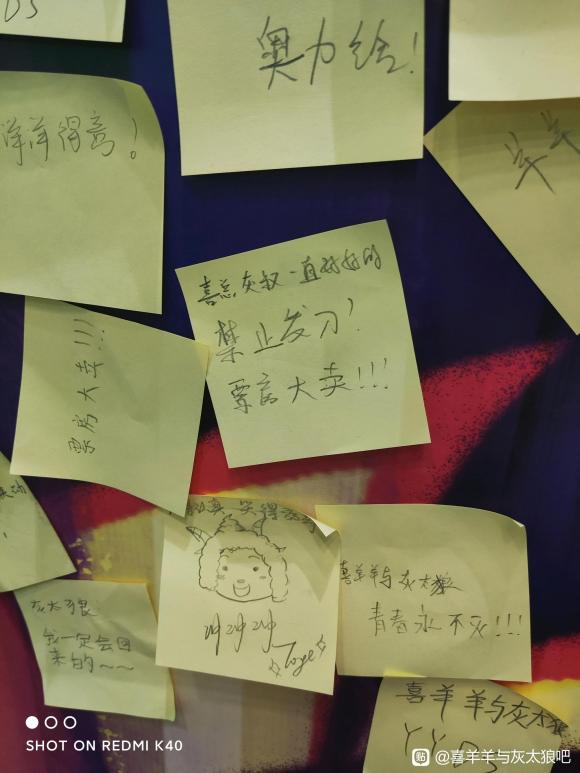 DS
奥力给!
洋洋得意!
喜总灰叔一直好好的
禁止发刀!
票房大卖!!!
票房大卖!!!
冲冲冲
灰太狼
我一定会回
来的~~
喜羊羊与灰太狼
青春永不灭!!!
喜羊羊与灰太狼
YYDS
SHOT ON REDMI K40
贴 @喜羊羊与灰太狼吧